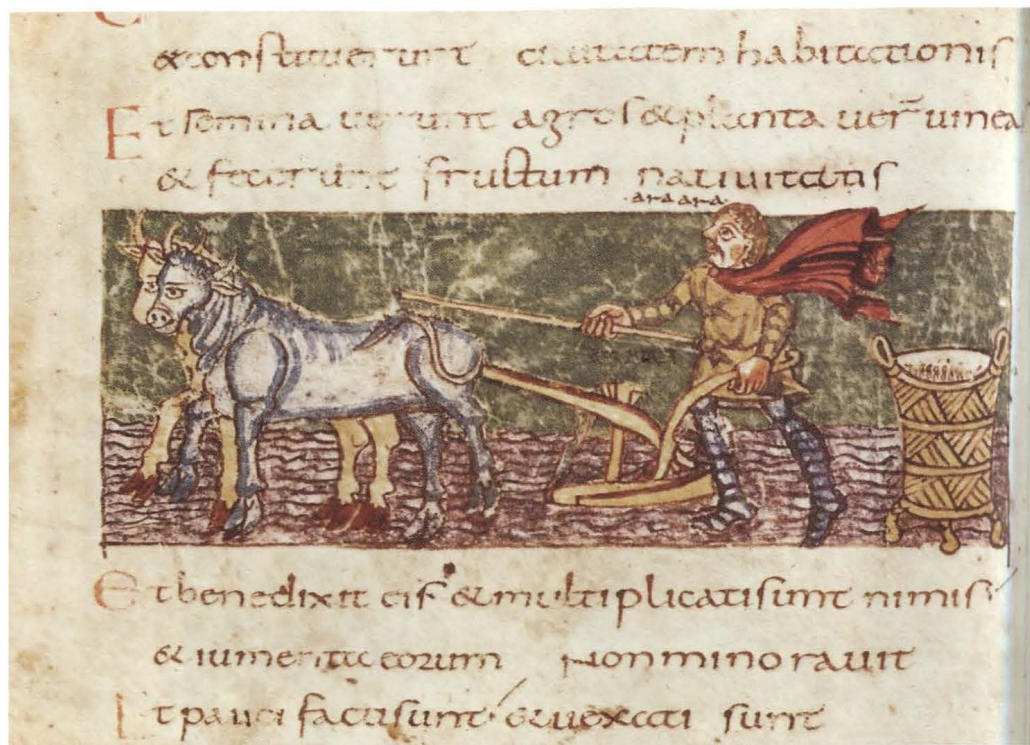 & constituerunt ciuitatem habitationis
Et seminauerunt agros & plantauer̄ uinea
& fecerunt fructum natiuitatis
ara ara
Et benedixit eis & multiplicati sunt nimis
& iumenta eorum Non minorauit
Et pauci facti sunt & uexati sunt